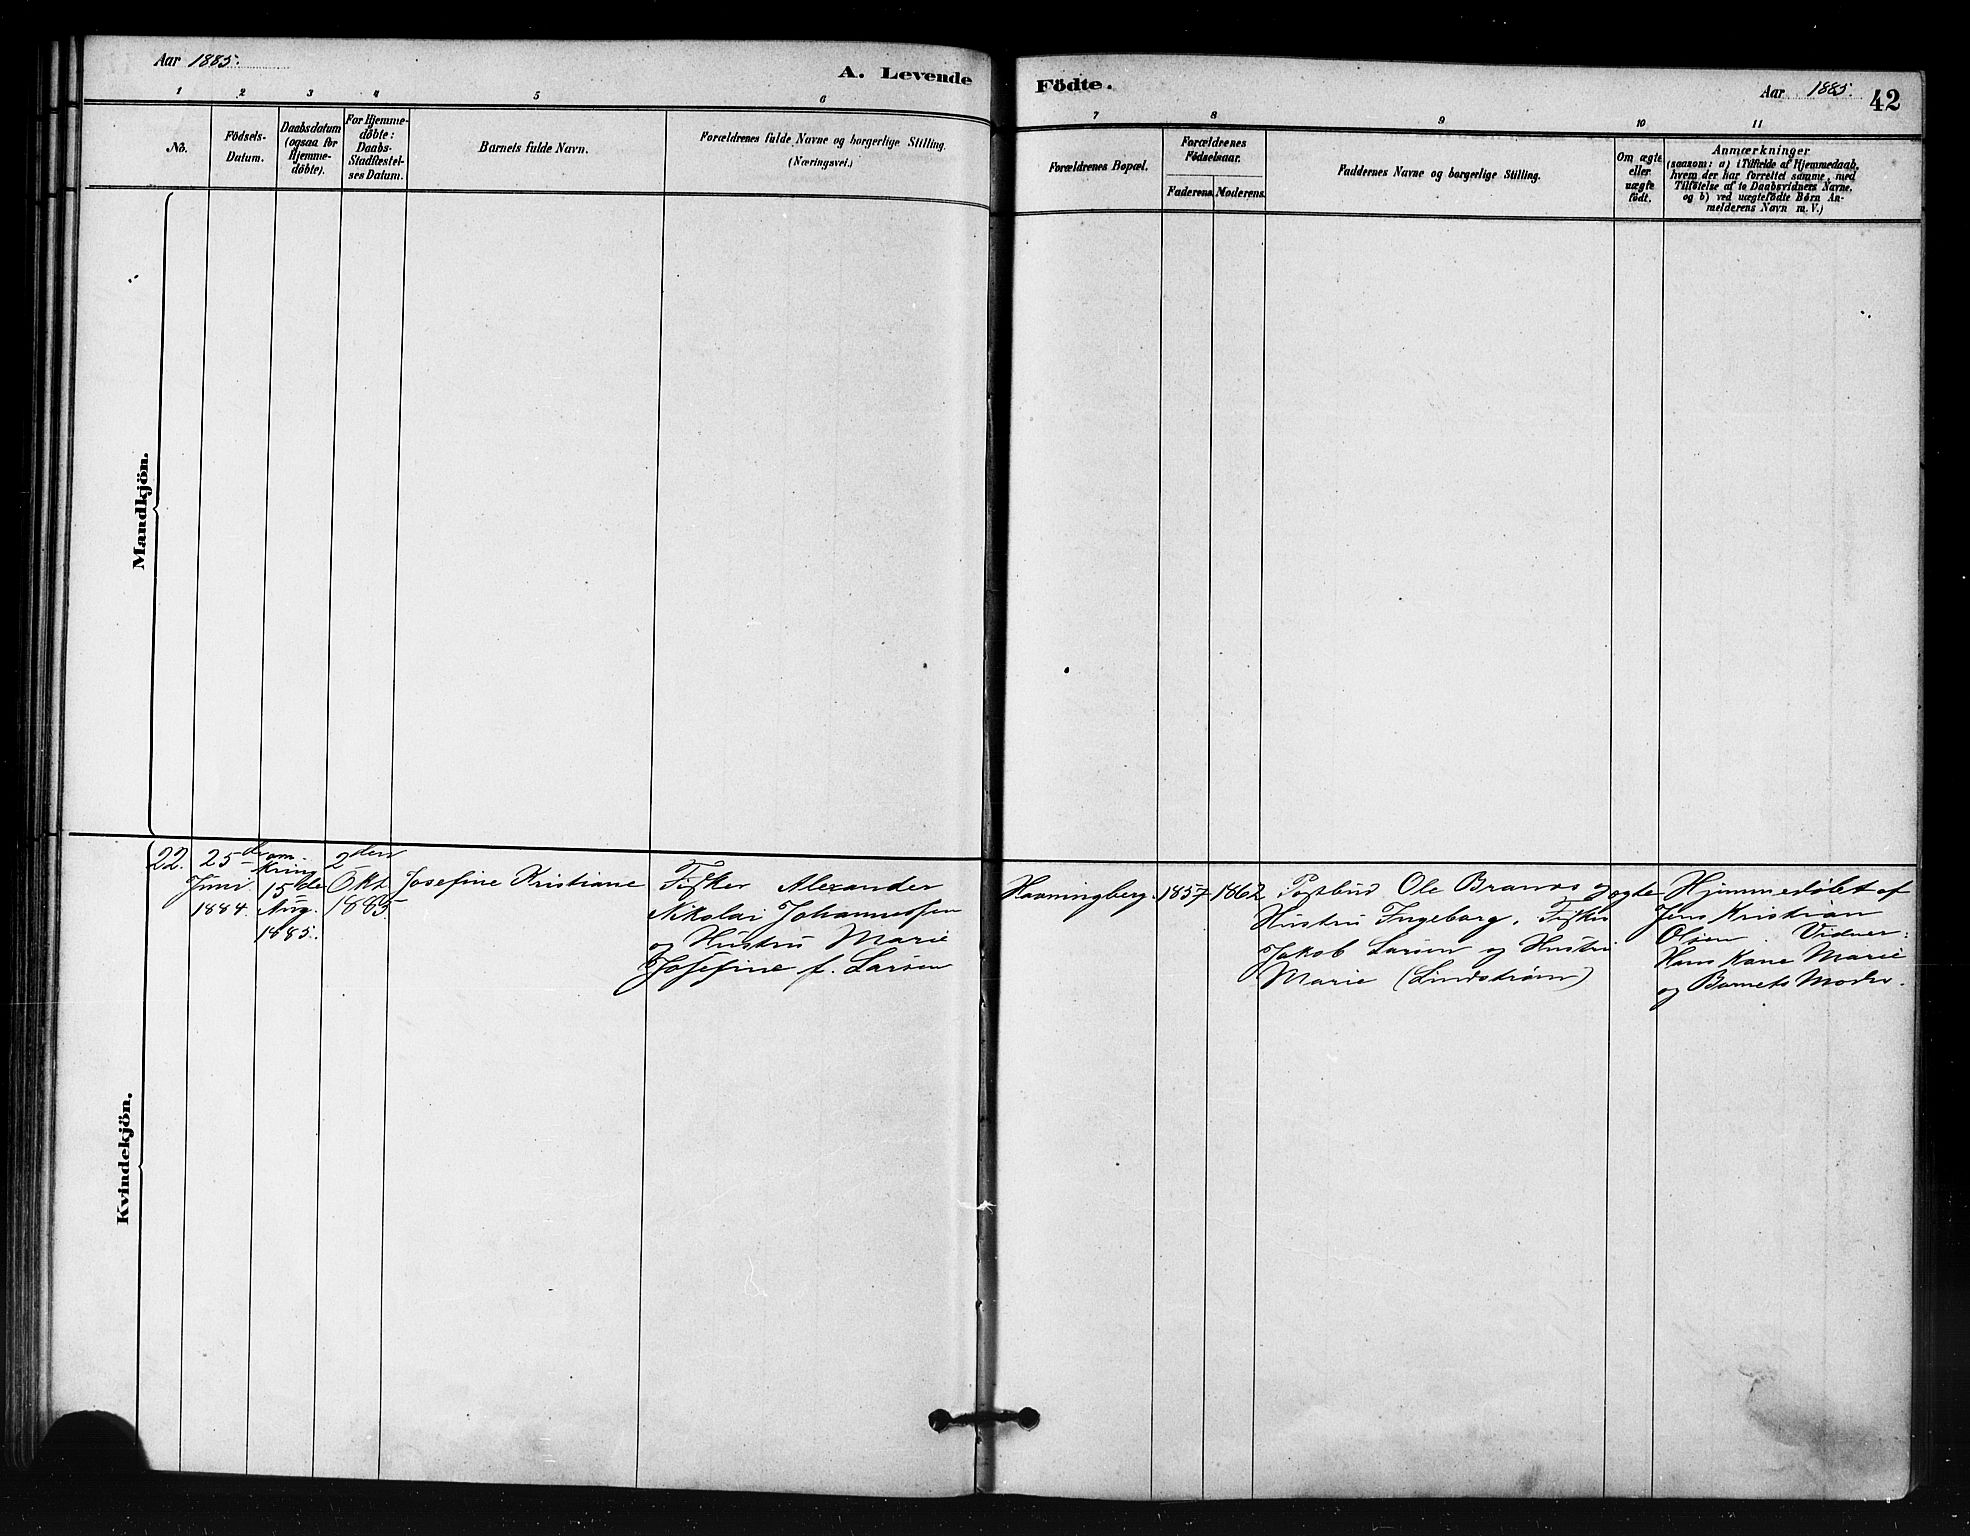 Aar 1885.
A. Levende
Födte.
Aar 1885.
42
1
2
3
4
5
6
7
8
9
10
11
No.
Födsels-
Datum.
Daabsdatum
(ogsaa for
Hjemme-
døbte).
For Hjemme-
døbte:
Daabs-
Stadfæstel-
ses Datum.
Barnets fulde Navn.
Forældrenes fulde Navne og borgerlige Stilling.
(Næringsvei.)
Forældrenes Bopæl.
Forældrenes
Födselsaar.
Faderens.
Moderens.
Faddernes Navne og borgerlige Stilling.
Om ægte
eller
uægte
födt.
Anmærkninger
(saasom: a) i Tilfælde af Hjemmedaab,
hvem der har forrettet samme, med
Tilføielse af to Daabsvidners Navne,
og b) ved uægtefödte Børn An-
melderens Navn m. V.)
Mandkjön.
Kvindekjön.
22.
25de
Juni
1884.
om-
Kring
15de
Aug.
1885.
2den
Okt.
1885
Josefine Kristiane
Fisker Alexander
Nikolai Johannessen
og Hustru Marie
Josefine f. Larsen
Havningberg.
1857
1862
Postbud Ole Brands og
Hustru Ingeborg. Fisker
Jakob Larsen og Hustru
Marie (Lindstrøm)
ægte
Hjemmedøbt af
Jens Kristian
Olsen. Vidner:
Hans Kone Marie
og Barnets Moder.